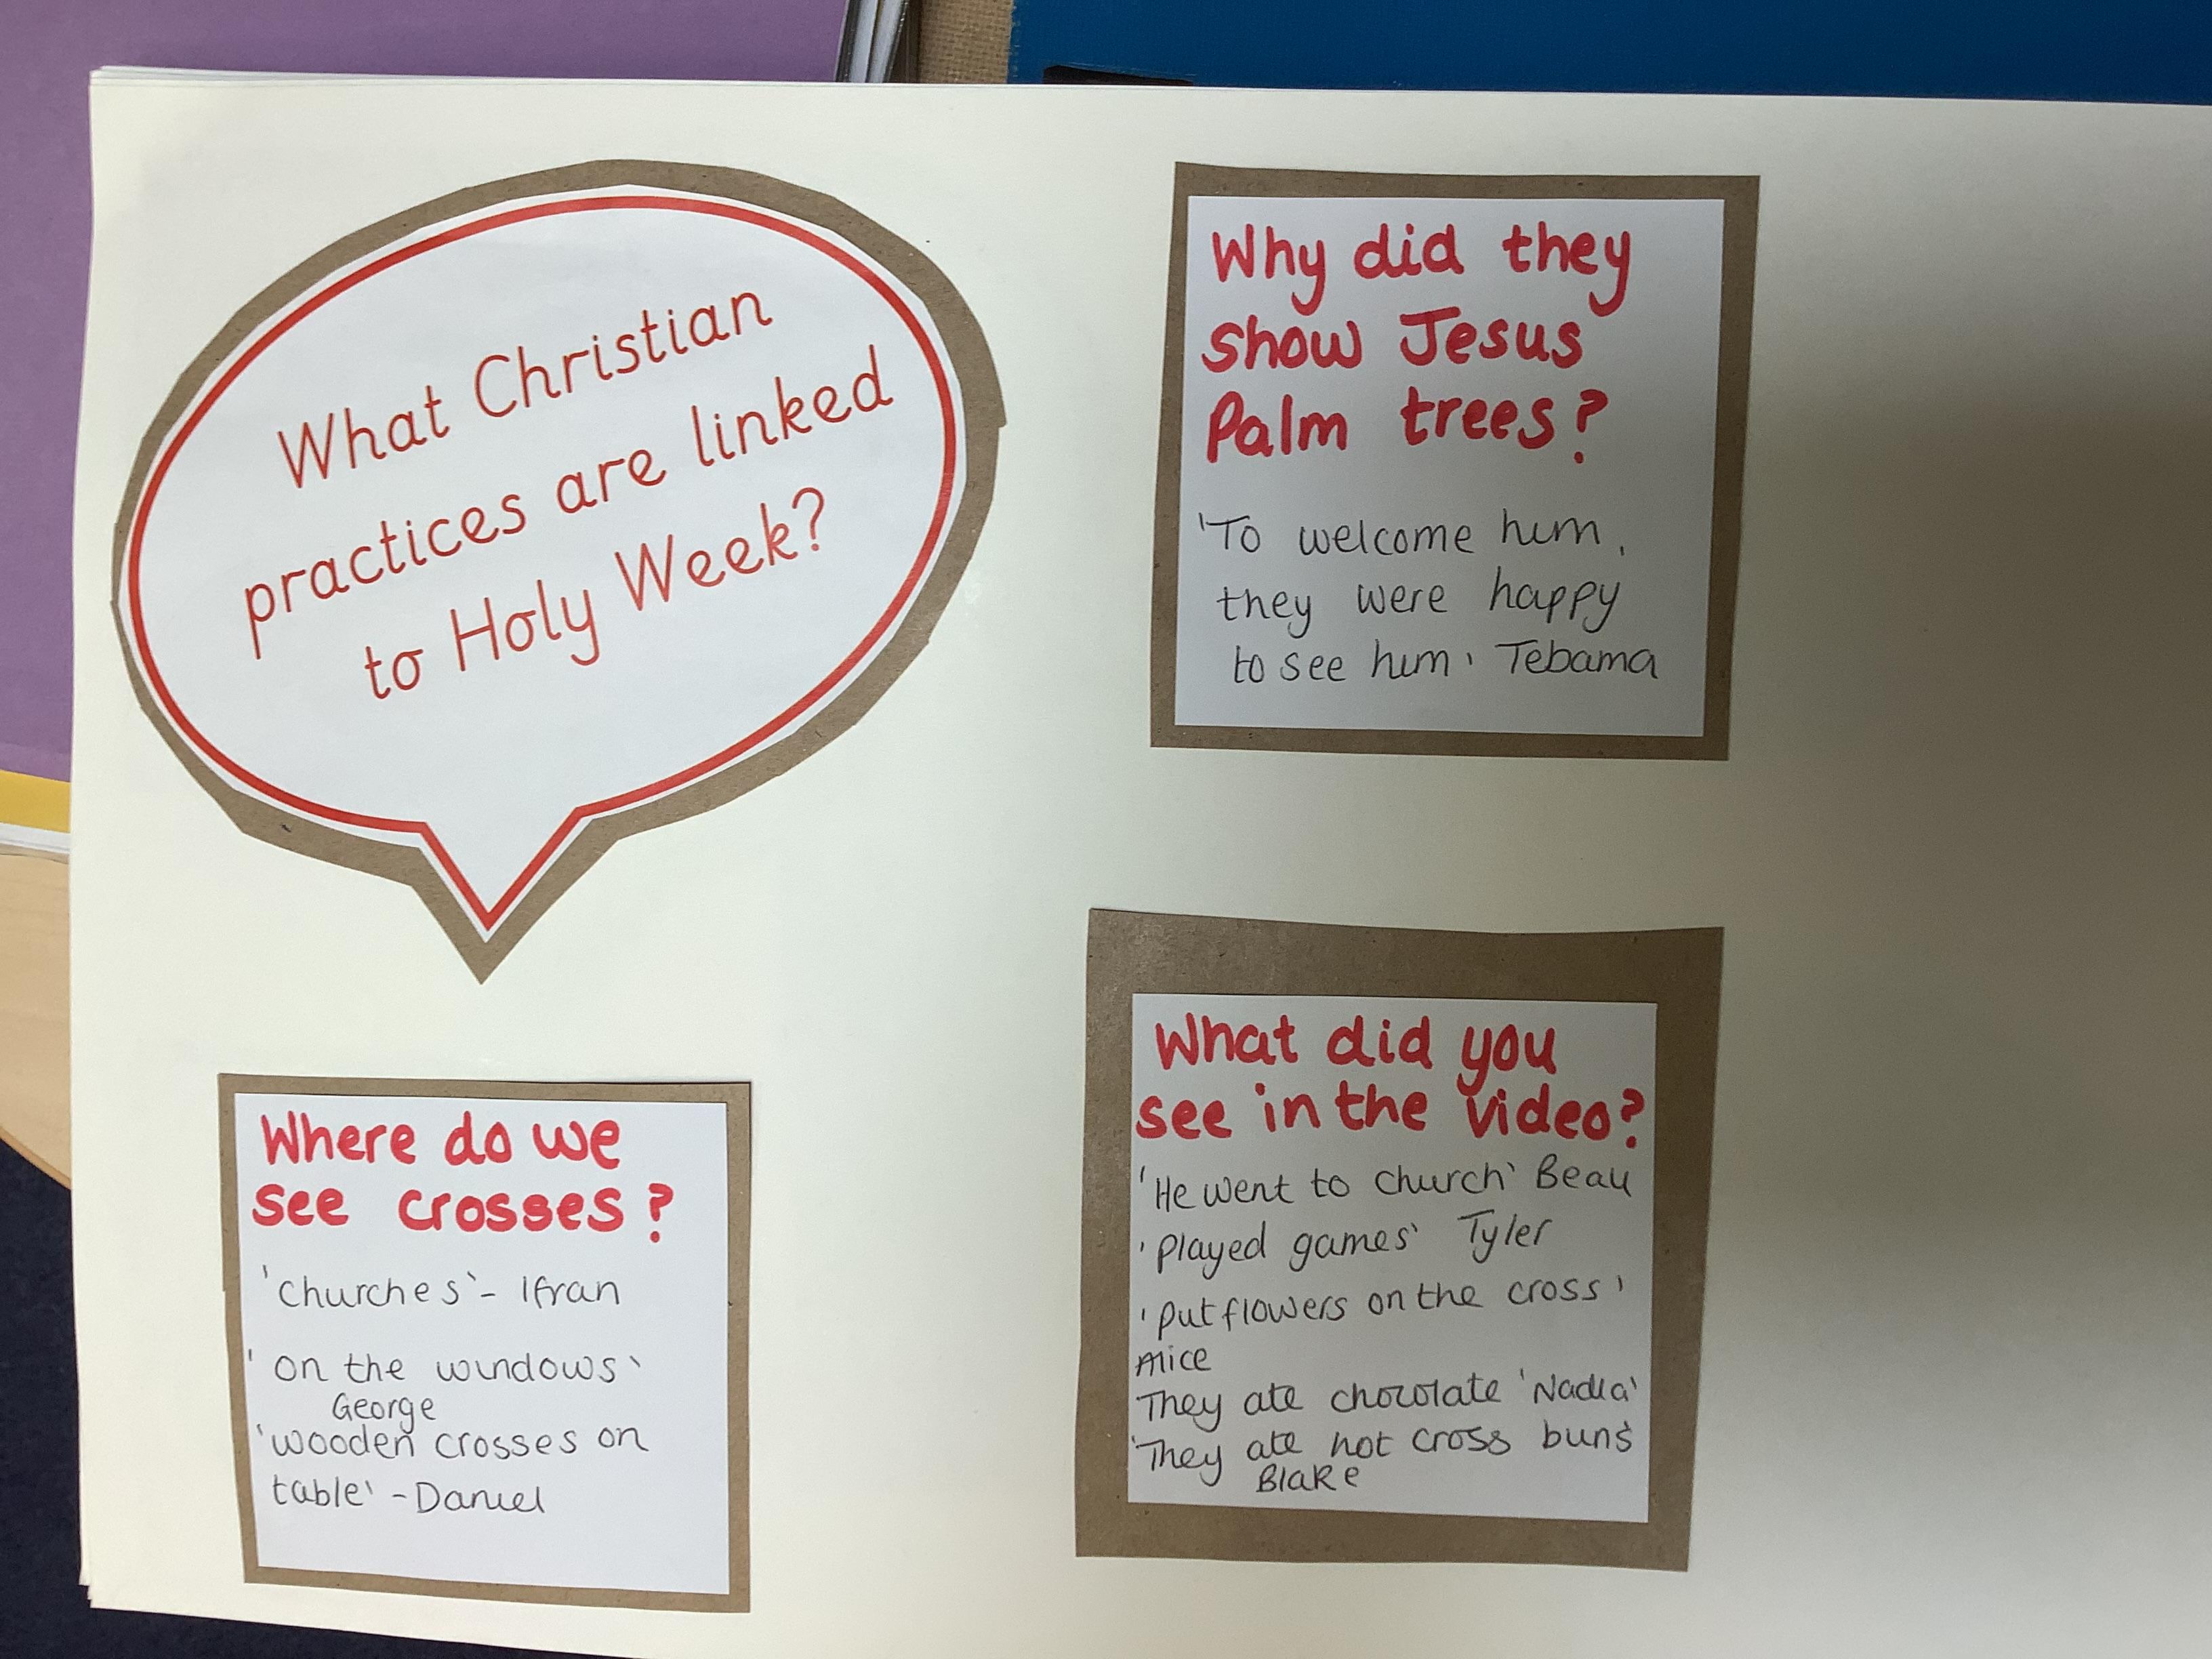 What Christian
practices are linked
to Holy Week?
Why did they
show Jesus
Palm trees?
'To welcome him,
they were happy
to see him' Tebama
Where do we
see crosses?
'churches' - Ifran
'on the windows'
George
'wooden crosses on
table' - Daniel
What did you
see in the video?
'He went to church' Beau
'played games' Tyler
'put flowers on the cross'
Alice
They ate chocolate 'Nadia'
'They ate hot cross buns'
Blake